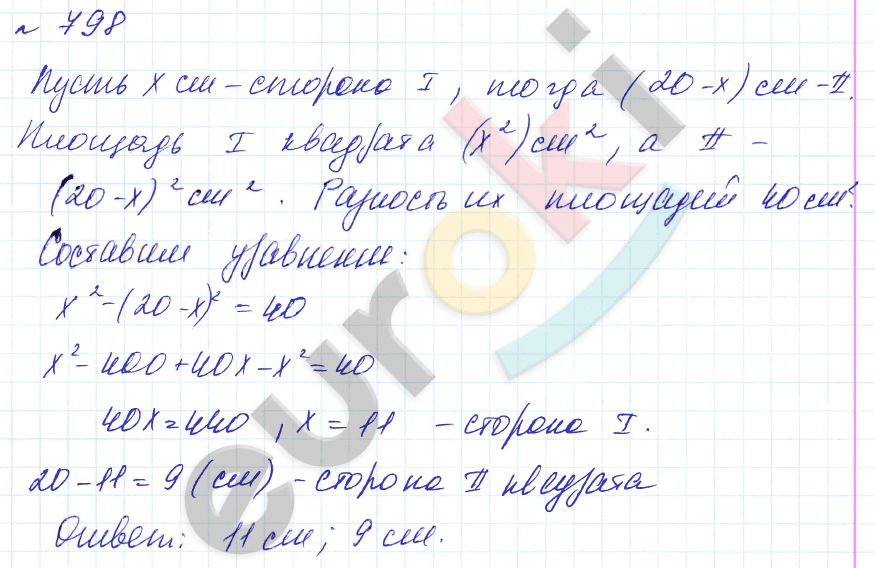 № 798
Пусть x см – сторона I, тогда (20-x) см – II.
Площадь I квадрата (x²) см², а II –
(20-x)² см². Разность их площадей 40 см².
Составим уравнение:
x² - (20-x)² = 40
x² - 400 + 40x - x² = 40
40x = 440, x = 11 – сторона I.
20 - 11 = 9 (см) – сторона II квадрата
Ответ: 11 см; 9 см.
euroki